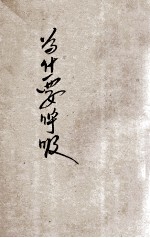 为什要呼吸